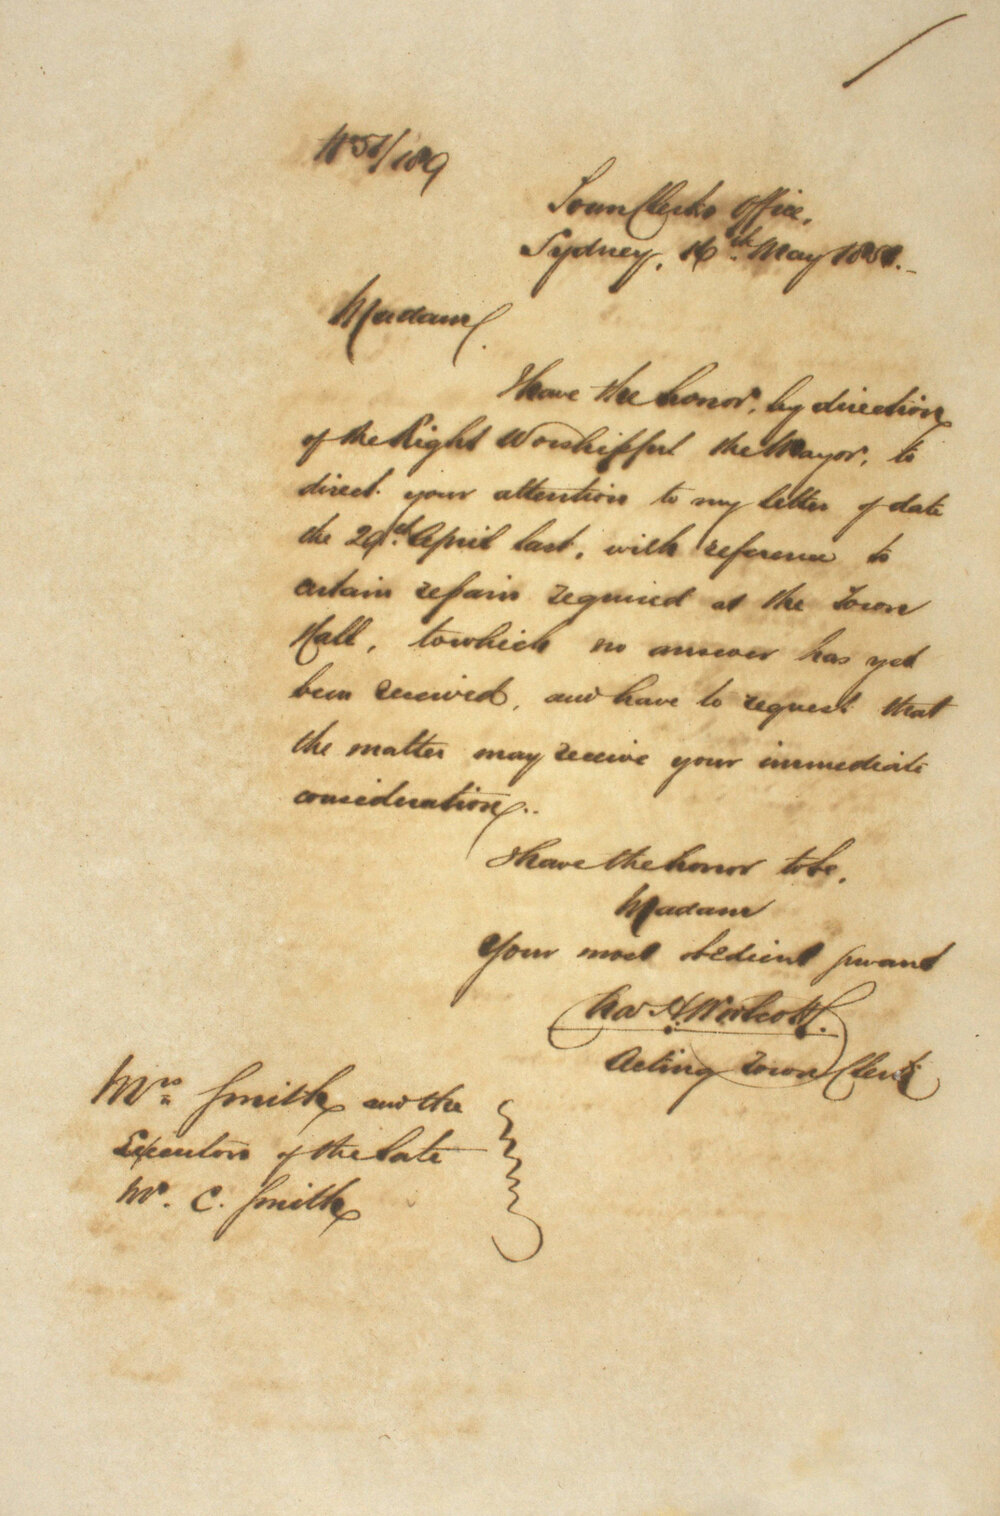 No 51/189
Town Clerks Office,
Sydney, 16th May 1851.
Madam,
I have the honor, by direction
of the Right Worshipful the Mayor, to
direct your attention to my letter of date
the 29th April last, with reference to
certain repairs required at the Town
Hall, to which no answer has yet
been received, and have to request that
the matter may receive your immediate
consideration.
I have the honor to be,
Madam
Your most obedient servant
Chas H. Woolcott.
Acting Town Clerk
Mrs Smith and the
Executors of the late
Mr. C. Smith